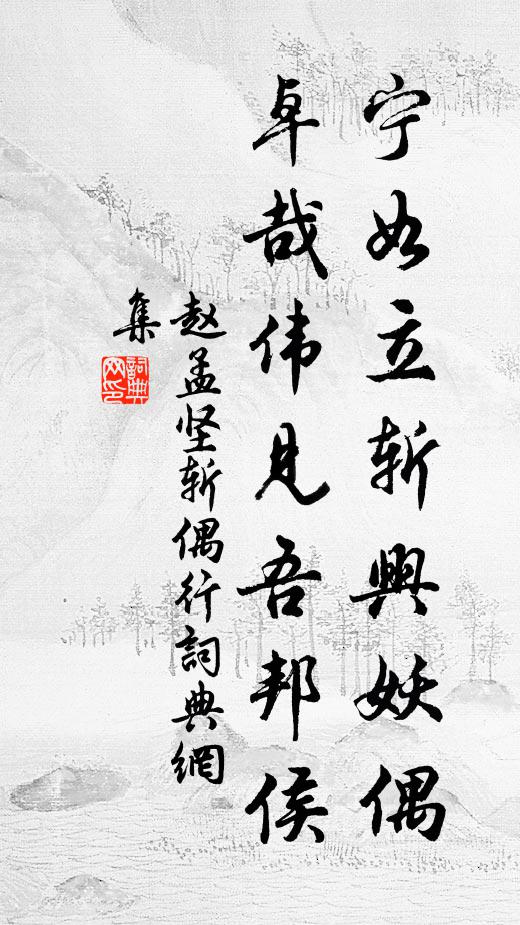 宁如立斩興妖偶
卓哉伟見吾邦侯
赵孟坚斩偶行詞典網
集
詞典网印